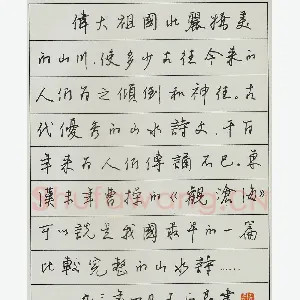 偉大祖國此麗嬌美
的山川,使多少古往今來的
人們爲之傾倒和神往。古
代優秀的山水詩文,千百
年來爲人們傳誦不已。東
漢末年曹操的《觀滄海》
可以説是我國最早的一篇
比較完整的山水詩……